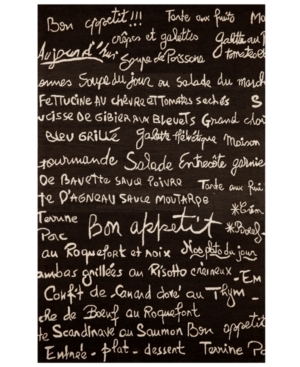 Bon appetit!!! Tarte aux fruits Mo
crêpes et galettes galette au f
Aujourd'hui Soupe de Poissons tomates
ormes Soupe du jour ou Salade du march
Fettucine au chèvre et tomates sechés S
ucisse de Gibier aux Bleuets Grand cho
Bleu Grillé Galette Helvétique Maison
gourmande Salade Entrecôte garnie
De Bavette Sauce Poivre Tarte aux frui
te D'Agneau Sauce Moutarde *Crèm
Terrine Bon appetit *Boeuf
Porc
au Roquefort et noix Nos plats du jour
ambas grillées au Risotto crèmeux -Em
Confit de Canard doré au Thym -
che de Boeuf au Roquefort
te Scandinave au Saumon Bon appetit
Entrée - plat - dessert Terrine Po